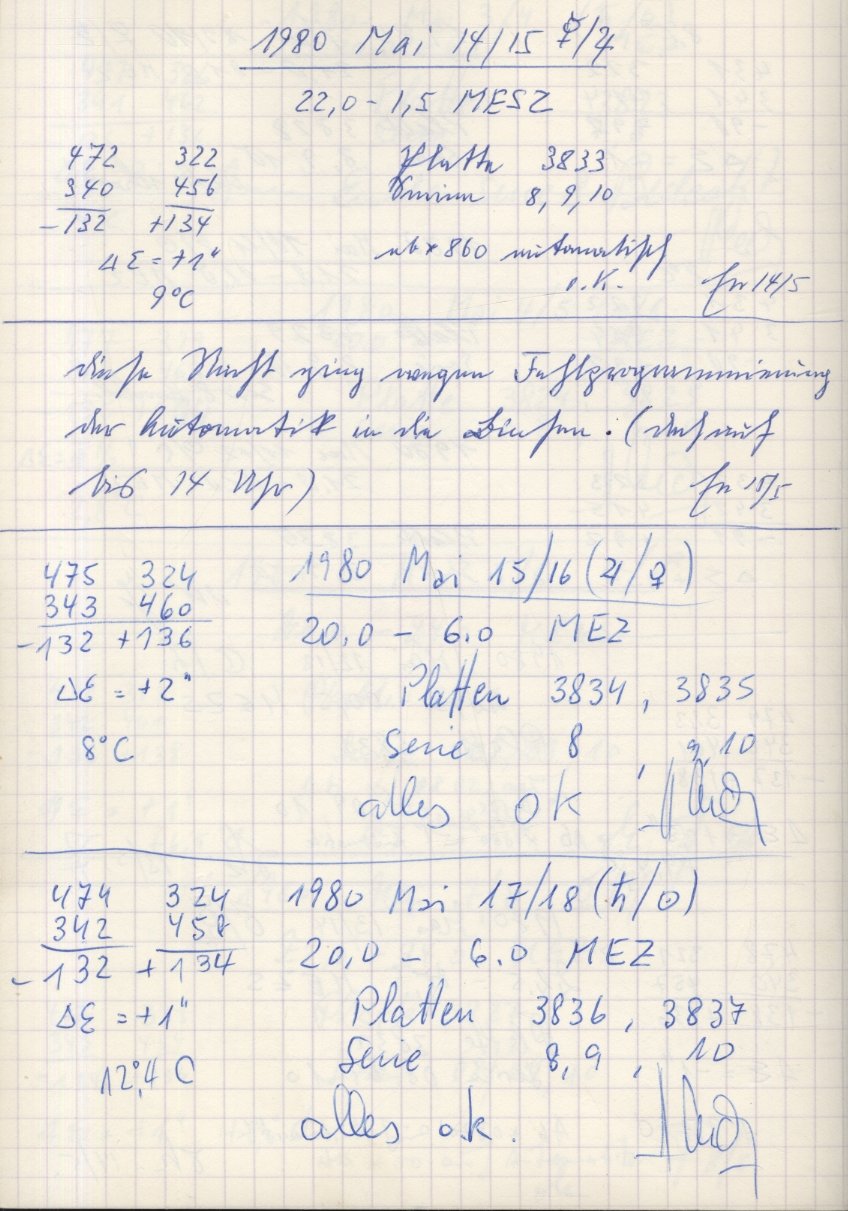 1980 Mai 14/15 ☿/♃
22,0 - 1,5 MESZ
472 322 Platte 3833
340 456 Serien 8, 9, 10
-132 +134
ΔΕ = +1" ab * 860 automatisch
9°C o.K. 14/5
diese Nacht ging wegen Fehlprogrammierung
der Automatik in die Binsen. (Dach auf
bis 14 Uhr) 15/5
475 324 1980 Mai 15/16 (♃/♀)
343 460
-132 +136 20,0 - 6.0 MEZ
ΔΕ = +2" Platten 3834, 3835
8°C Serie 8, 9, 10
alles ok
474 324 1980 Mai 17/18 (♄/☉)
342 458
-132 +134 20,0 - 6.0 MEZ
ΔΕ = +1" Platten 3836, 3837
12°,4 C Serie 8, 9, 10
alles o.k.